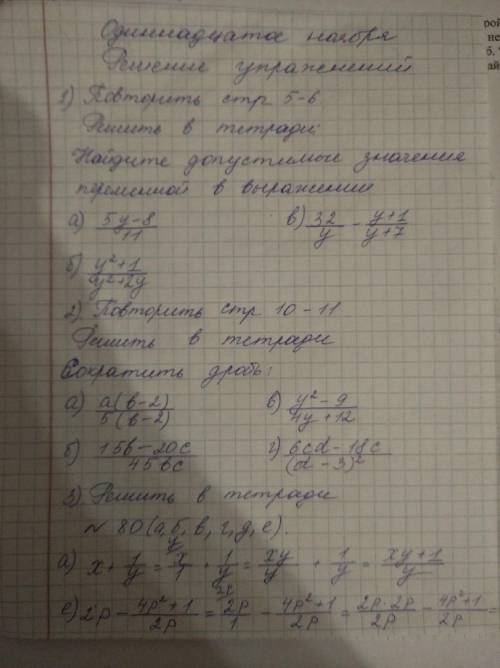 рой
не
б.
ай
Одиннадцатое ноября
Решение упражнений
1) Повторить стр 5-6
Решить в тетради:
Найдите допустимые значение
переменной в выражении
а) (5y-8)/11 в) 32/y - (y+1)/(y+7)
б) (y²+1)/(y²+2y)
2) Повторить стр. 10-11
Решить в тетради
Сократить дробь:
а) a(b-2)/5(b-2) в) (y²-9)/(4y+12)
б) (15b-20c)/45bc г) (6cd-18c)/(d-3)²
3) Решить в тетради
~ 80(а,б,в,г,д,е).
а) x+1/y = x/1 + 1/y = xy/y + 1/y = (xy+1)/y
е) 2p - (4p²+1)/2p = 2p/1 - (4p²+1)/2p = 2p·2p/2p - (4p²+1)/2p =